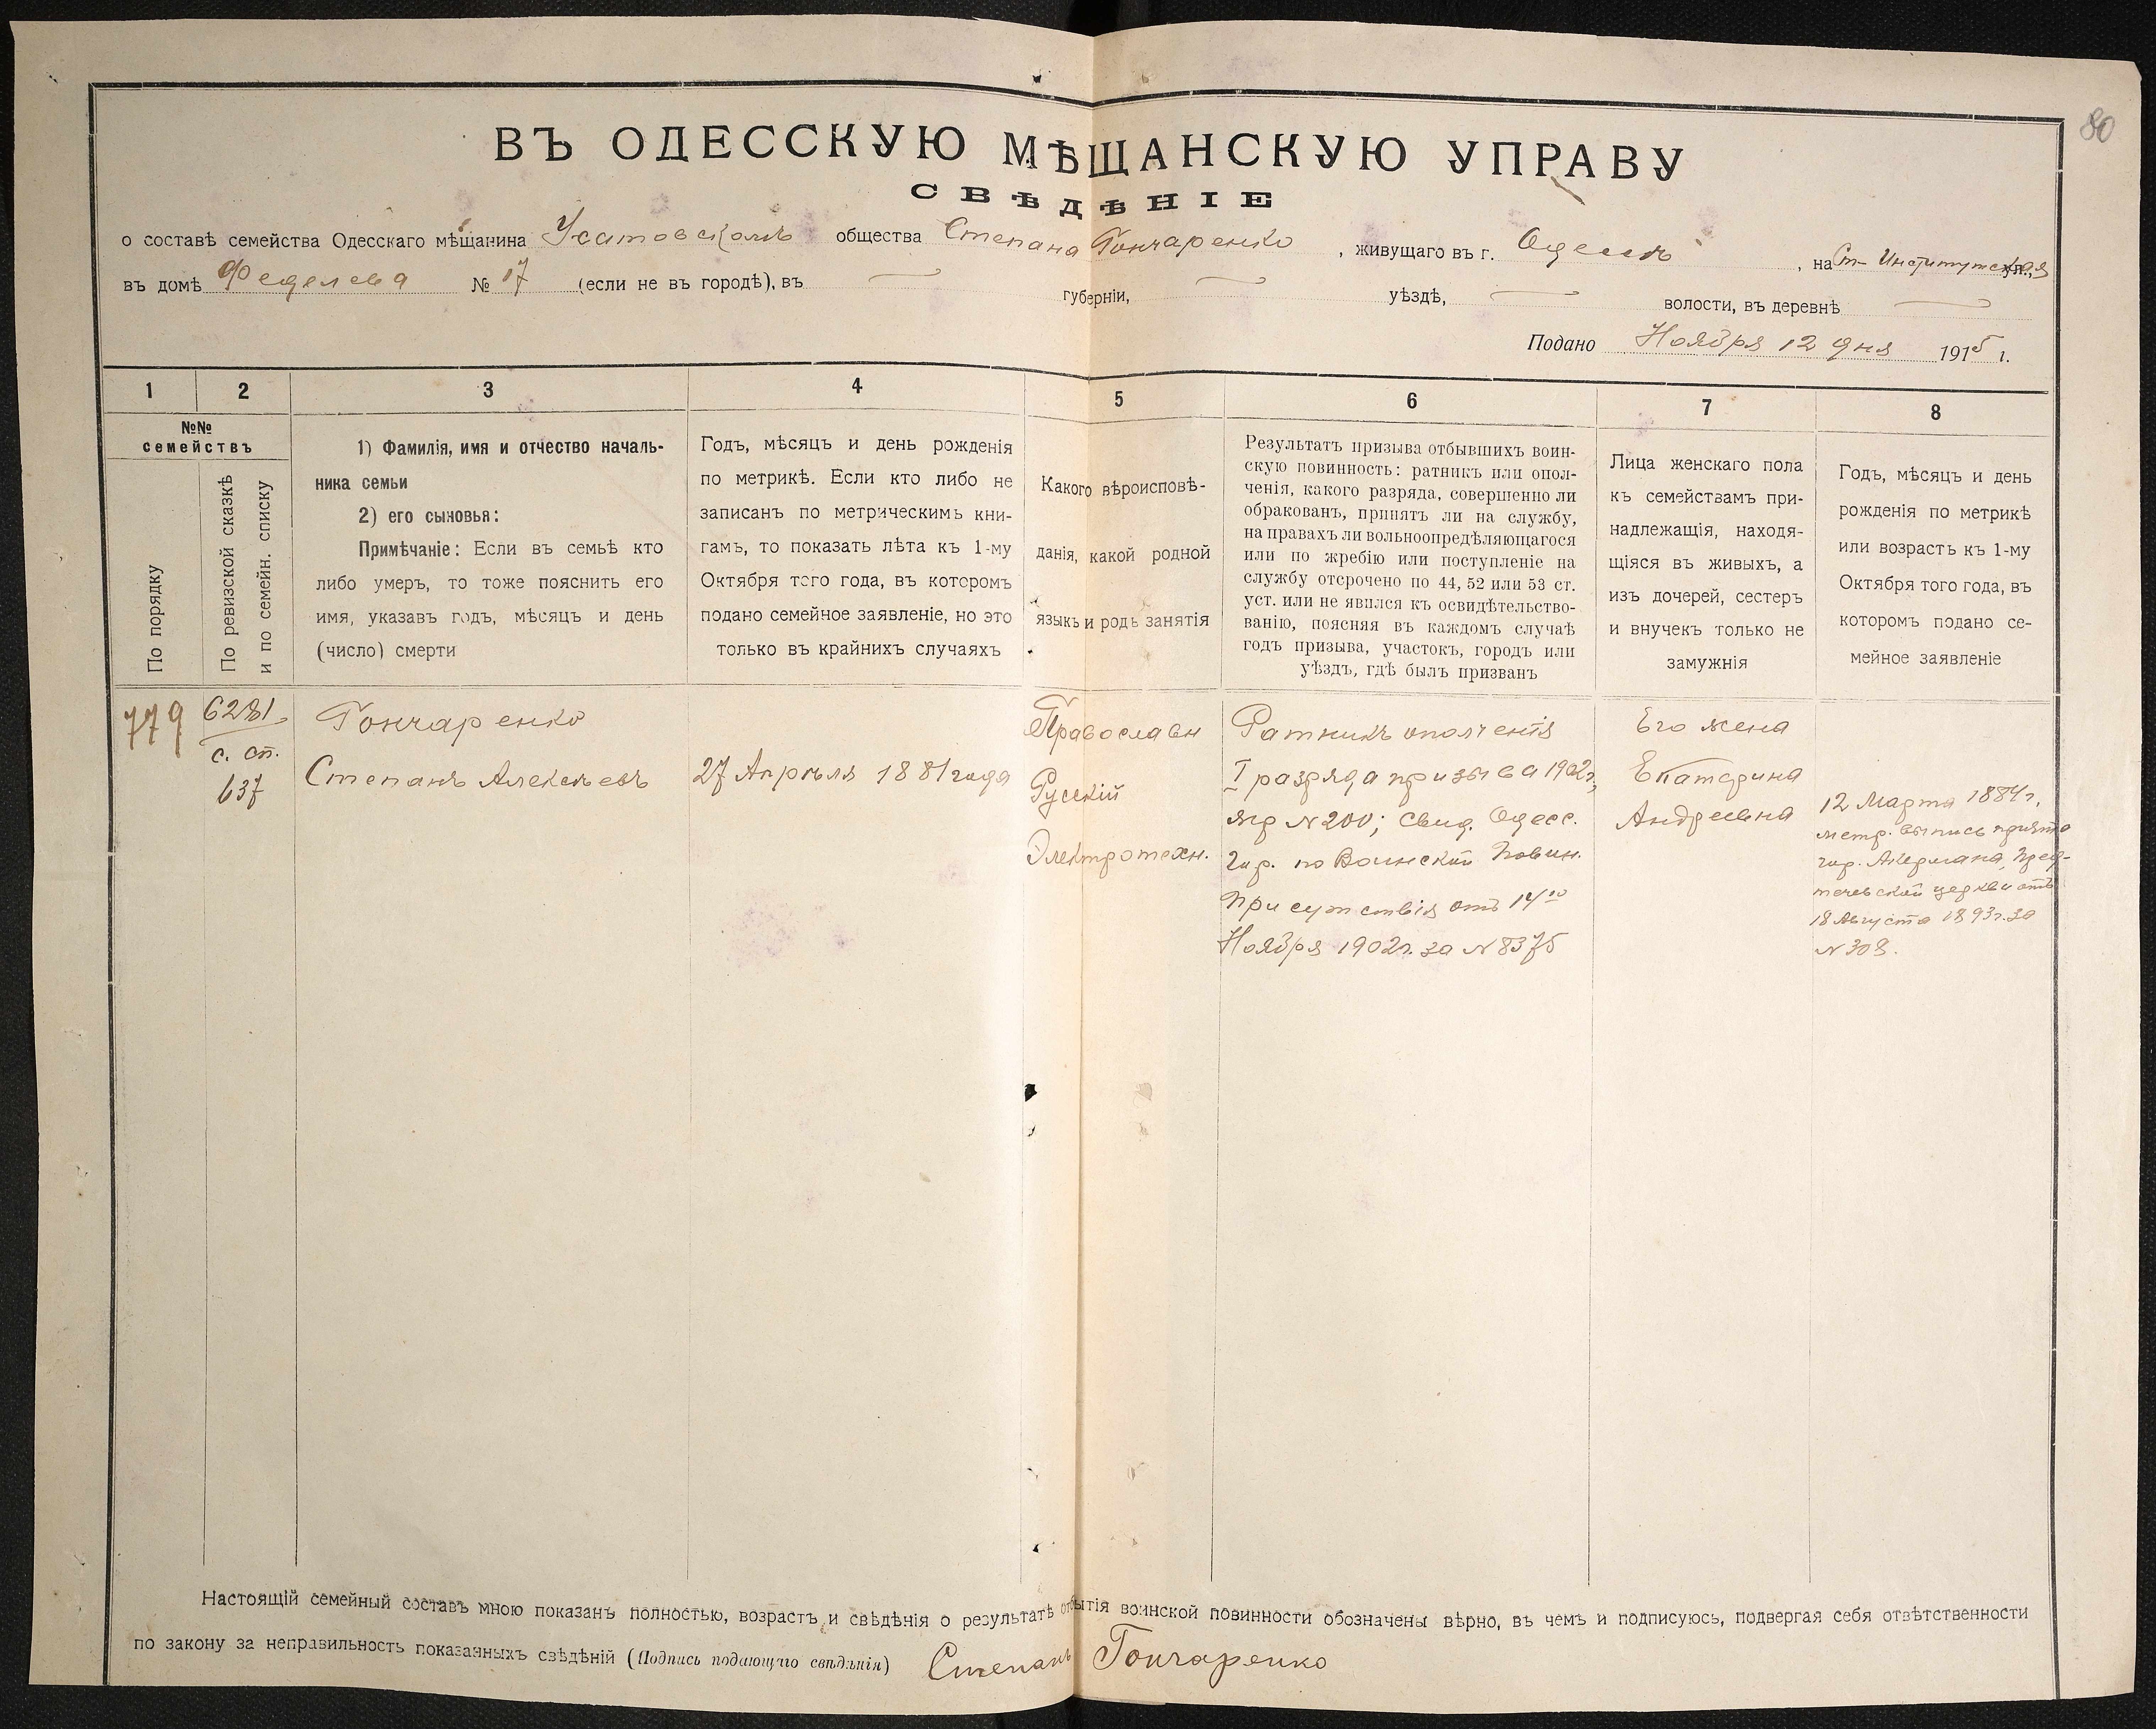 80
ВЪ ОДЕССКУЮ МѢЩАНСКУЮ УПРАВУ
СВѢДѢНІЕ
о составѣ семейства Одесскаго мѣщанина Усатовскомъ общества Степана Гончаренко, живущаго въ г. Одессѣ, на Ст- Институтская ул.,
въ домѣ № 17 (если не въ городѣ), въ губерніи, уѣздѣ, волости, въ деревнѣ
Подано Ноября 12 дня 1915 г.
1 2 3 4 5 6 7 8
№№
семействъ
По порядку
По ревизской сказкѣ
и по семейн. списку
1) Фамилія, имя и отчество началь-
ника семьи
2) его сыновья:
Примѣчаніе: Если въ семьѣ кто
либо умеръ, то тоже пояснить его
имя, указавъ годъ, мѣсяцъ и день
(число) смерти
Годъ, мѣсяцъ и день рожденія
по метрикѣ. Если кто либо не
записанъ по метрическимъ кни-
гамъ, то показать лѣта къ 1-му
Октября того года, въ которомъ
подано семейное заявленіе, но это
только въ крайнихъ случаяхъ
Какого вѣроисповѣ-
данія, какой родной
языкъ и родъ занятія
Результатъ призыва отбывшихъ воин-
скую повинность: ратникъ или опол-
ченія, какого разряда, совершенно ли
обракованъ, принятъ ли на службу,
на правахъ ли вольноопредѣляющагося
или по жребію или поступленіе на
службу отсрочено по 44, 52 или 53 ст.
уст. или не явился къ освидѣтельство-
ванію, поясняя въ каждомъ случаѣ
годъ призыва, участокъ, городъ или
уѣздъ, гдѣ былъ призванъ
Лица женскаго пола
къ семействамъ при-
надлежащія, находя-
щіяся въ живыхъ, а
изъ дочерей, сестеръ
и внучекъ только не
замужнія
Годъ, мѣсяцъ и день
рожденія по метрикѣ
или возрастъ къ 1-му
Октября того года, въ
которомъ подано се-
мейное заявленіе
779
6281
с. сп.
637
Гончаренко
Степанъ Алексѣевъ
27 Апрѣля 1881 года
Православн
Русскій
Электротехн.
Ратникъ ополченія
I разряда призыва 1902г,
жр N 200; свид. Одесс.
Гор. по Воинской Повин.
Присутствія отъ 14го
Ноября 1902г. за N 8375
Его жена
Екатерина
Андреевна
12 Марта 1884г,
метр. выпись принята
гор. Акермана, Пред-
течевской церкви отъ
18 Августа 1893г. за
N 308.
Настоящій семейный составъ мною показанъ полностью, возрастъ и свѣдѣнія о результатѣ отбытія воинской повинности обозначены вѣрно, въ чемъ и подписуюсь, подвергая себя отвѣтственности
по закону за неправильность показанныхъ свѣдѣній (Подпись подающаго свѣдѣнія) Степанъ Гончаренко